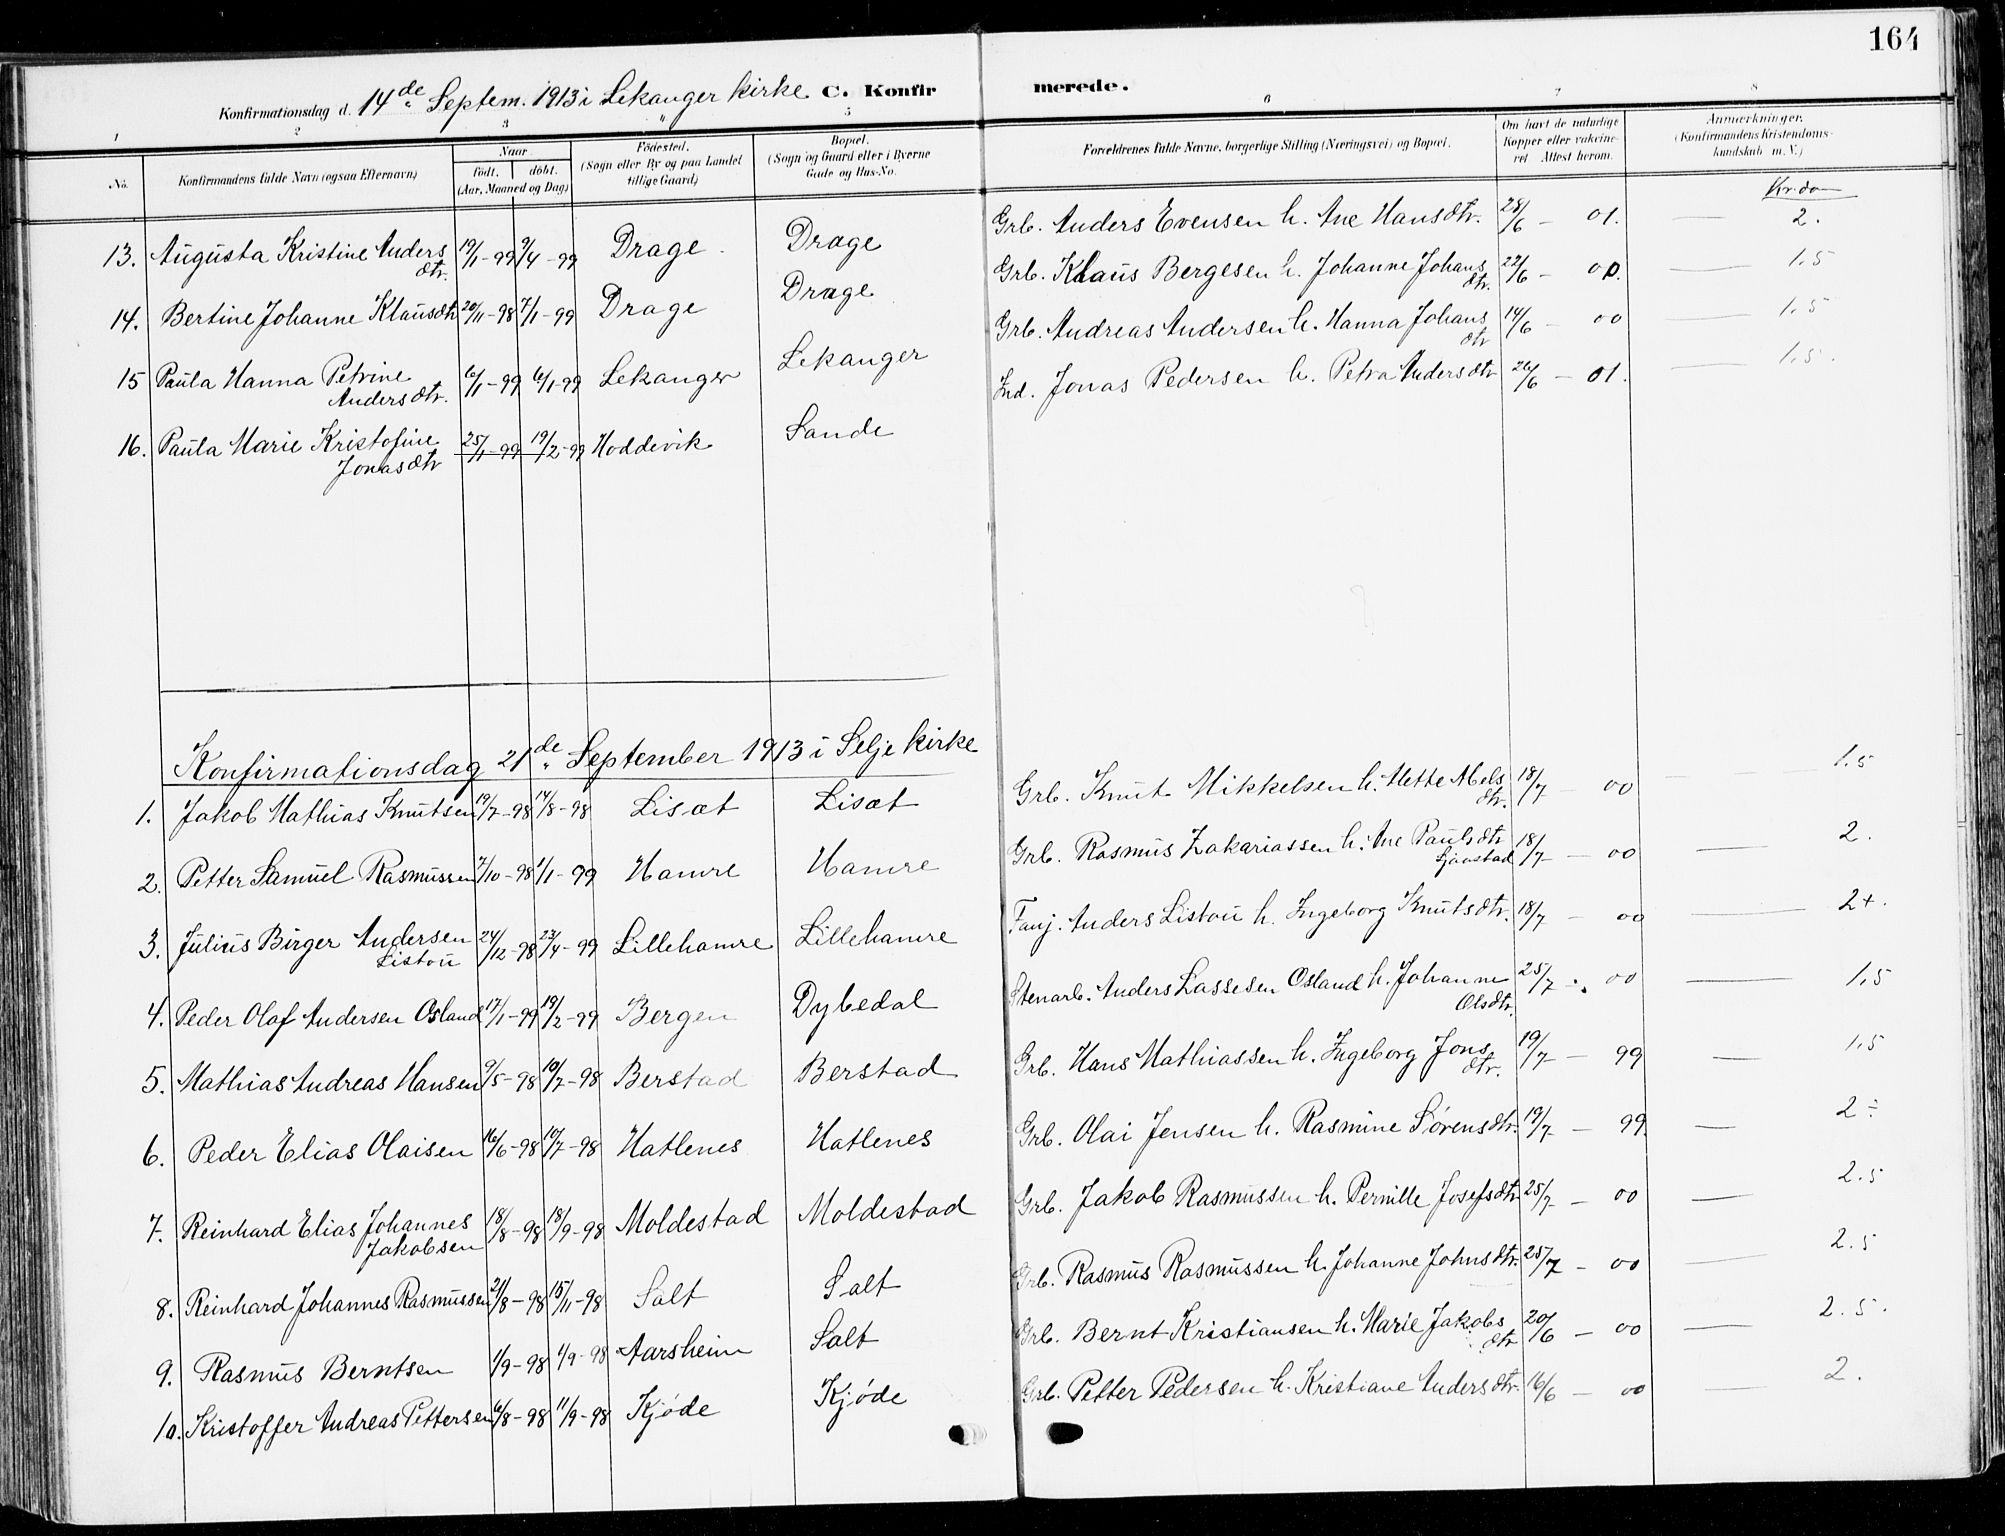 164
Konfirmationsdag d. 14de Septem. 1913 i Lekanger kirke C. Konfirmerede.
1 2 3 4 5 6 7 8
No. Konfirmandens fulde Navn (ogsaa Efternavn) Naar født. døbt. (Aar, Maaned og Dag) Fødested. (Sogn eller By og paa Landet tillige Gaard) Bopæl. (Sogn og Gaard eller i Byerne Gade og Hus-No. Forældrenes fulde Navne, borgerlige Stilling (Næringsvei) og Bopæl. Om havt de naturlige Kopper eller vakcineret. Attest herom. Anmærkninger. (Konfirmandens Kristendomskundskab m. V.)
Kr.dom
13. Augusta Kristine Andersdtr. 19/1-99 9/4-99 Drage Drage Grb. Anders Evensen h. Ane Hansdtr. 28/6 - 01. 2.
14. Bertine Johanne Klausdtr 20/11-98 7/1-99 Drage Drage Grb. Klaus Bergesen h. Johanne Johansdtr. 22/6 - 00. 1.5
15 Paula Hanna Petrine Andersdtr. 6/1-99 6/1-99 Lekanger Lekanger Grb. Andreas Andersen h. Hanna Johansdtr 14/6 - 00 1.5
16. Paula Marie Kristofine Jonasdtr 25/1-99 19/2-99 Hoddevik Sande Ind. Jonas Pedersen h. Petra Andersdtr 26/6 - 01. 1.5.
Konfirmationsdag 21de September 1913 i Selje kirke
1. Jakob Mathias Knutsen 19/7-98 14/8-98 Lisæt Lisæt Grb. Knut Mikkelsen h. Mette Abelsdtr. 18/7 - 00 1.5
2. Petter Samuel Rasmussen 7/10-98 1/1-99 Hamre Hamre Grb. Rasmus Zakariassen h. Ane Paulsdtr 18/7 - 00 2.
3. Julius Birger Andersen Listou 24/12-98 23/4-99 Lillehamre Lillehamre Fanj. Anders Listou h. Ingeborg Knutsdtr. 18/7 - 00 2+.
4. Peder Olaf Andersen Osland 17/1-99 19/2-99 Bergen Dybedal Stenarb. Anders Lassesen Osland h. Johanne Olsdtr. 25/7 - 00 1,5
5. Mathias Andreas Hansen 9/5-98 10/7-98 Berstad Berstad Grb. Hans Mathiassen h. Ingeborg Jonsdtr. 19/7 - 99 1.5
6. Peder Elias Olaisen 16/6-98 10/7-98 Hatlenes Hatlenes Grb. Olai Jensen h. Rasmine Sørensdtr. 19/7 - 99. 2÷
7. Reinhard Elias Johannes Jakobsen 18/8-98 18/9-98 Moldestad Moldestad Grb. Jakob Rasmussen h. Pernille Josefsdtr 25/7 - 00 2.5
8. Reinhard Johannes Rasmussen 21/8-98 15/11-98 Salt Salt Grb. Rasmus Rasmussen h. Johanne Johnsdtr. 25/7 - 00 2.5
9. Rasmus Berntsen 1/9-98 1/9-98 Aarsheim Salt Grb. Bernt Kristiansen h. Marie Jakobsdtr 20/6 - 00 2.5.
10. Kristoffer Andreas Pettersen 6/8-98 11/9-98 Kjøde Kjøde Grb. Petter Pedersen h. Kristiane Andersdtr. 16/6 - 00 2.